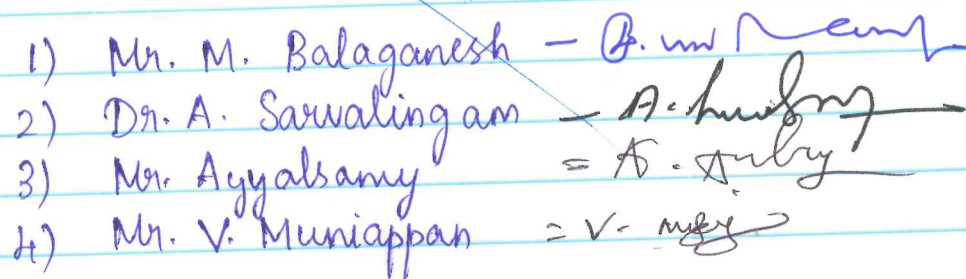 1) Mr. M. Balaganesh -
2) Dr. A. Sarvalingam - A.
3) Mr. Ayyalsamy = A.
4) Mr. V. Muniappan = V.